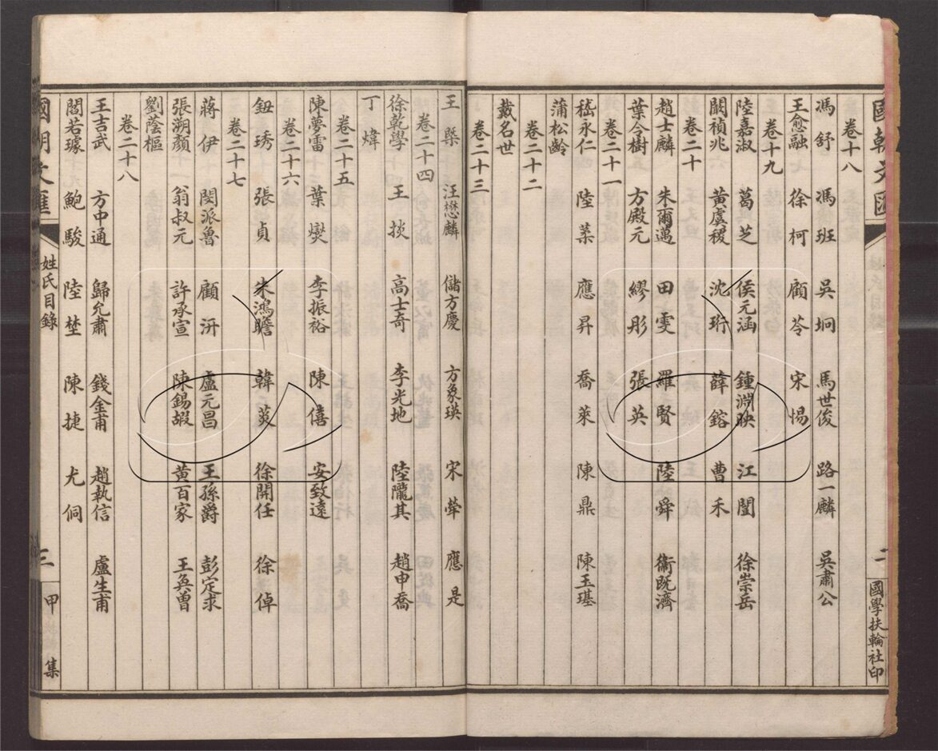 國朝文匯
二
國學扶輪社印
卷十八
馮舒 馮班 吳坰 馬世俊 路一麟 吳肅公
王愈融 徐柯 顧苓 宋惕
卷十九
陸嘉淑 葛芝 侯元涵 鍾淵映 江闓 徐崇岳
闞禎兆 黃虞稷 沈珩 薛鎔 曹禾
卷二十
趙士麟 朱爾邁 田雯 羅賢 陸舜 衛既濟
葉令樹 方殿元 繆彤 張英
卷二十一
嵇永仁 陸棻 應昇 喬萊 陳鼎 陳玉璂
蒲松齡
卷二十二
戴名世
卷二十三
王槩 汪懋麟 儲方慶 方象瑛 宋犖 應是
卷二十四
徐乾學 王掞 高士奇 李光地 陸隴其 趙申喬
丁煒
卷二十五
陳夢雷 葉燮 李振裕 陳僖 安致遠
卷二十六
鈕琇 張貞 朱鴻瞻 韓菼 徐開任 徐倬
卷二十七
蔣伊 閔派魯 顧汧 盧元昌 王孫爵 彭定求
張溯顏 翁叔元 許承宣 陳錫嘏 黃百家 王奐曾
劉蔭樞
卷二十八
王吉武 方中通 歸允肅 錢金甫 趙執信 盧生甫
閻若璩 鮑駿 陸埜 陳捷 尤侗
國朝文匯
姓氏目錄
三
甲集